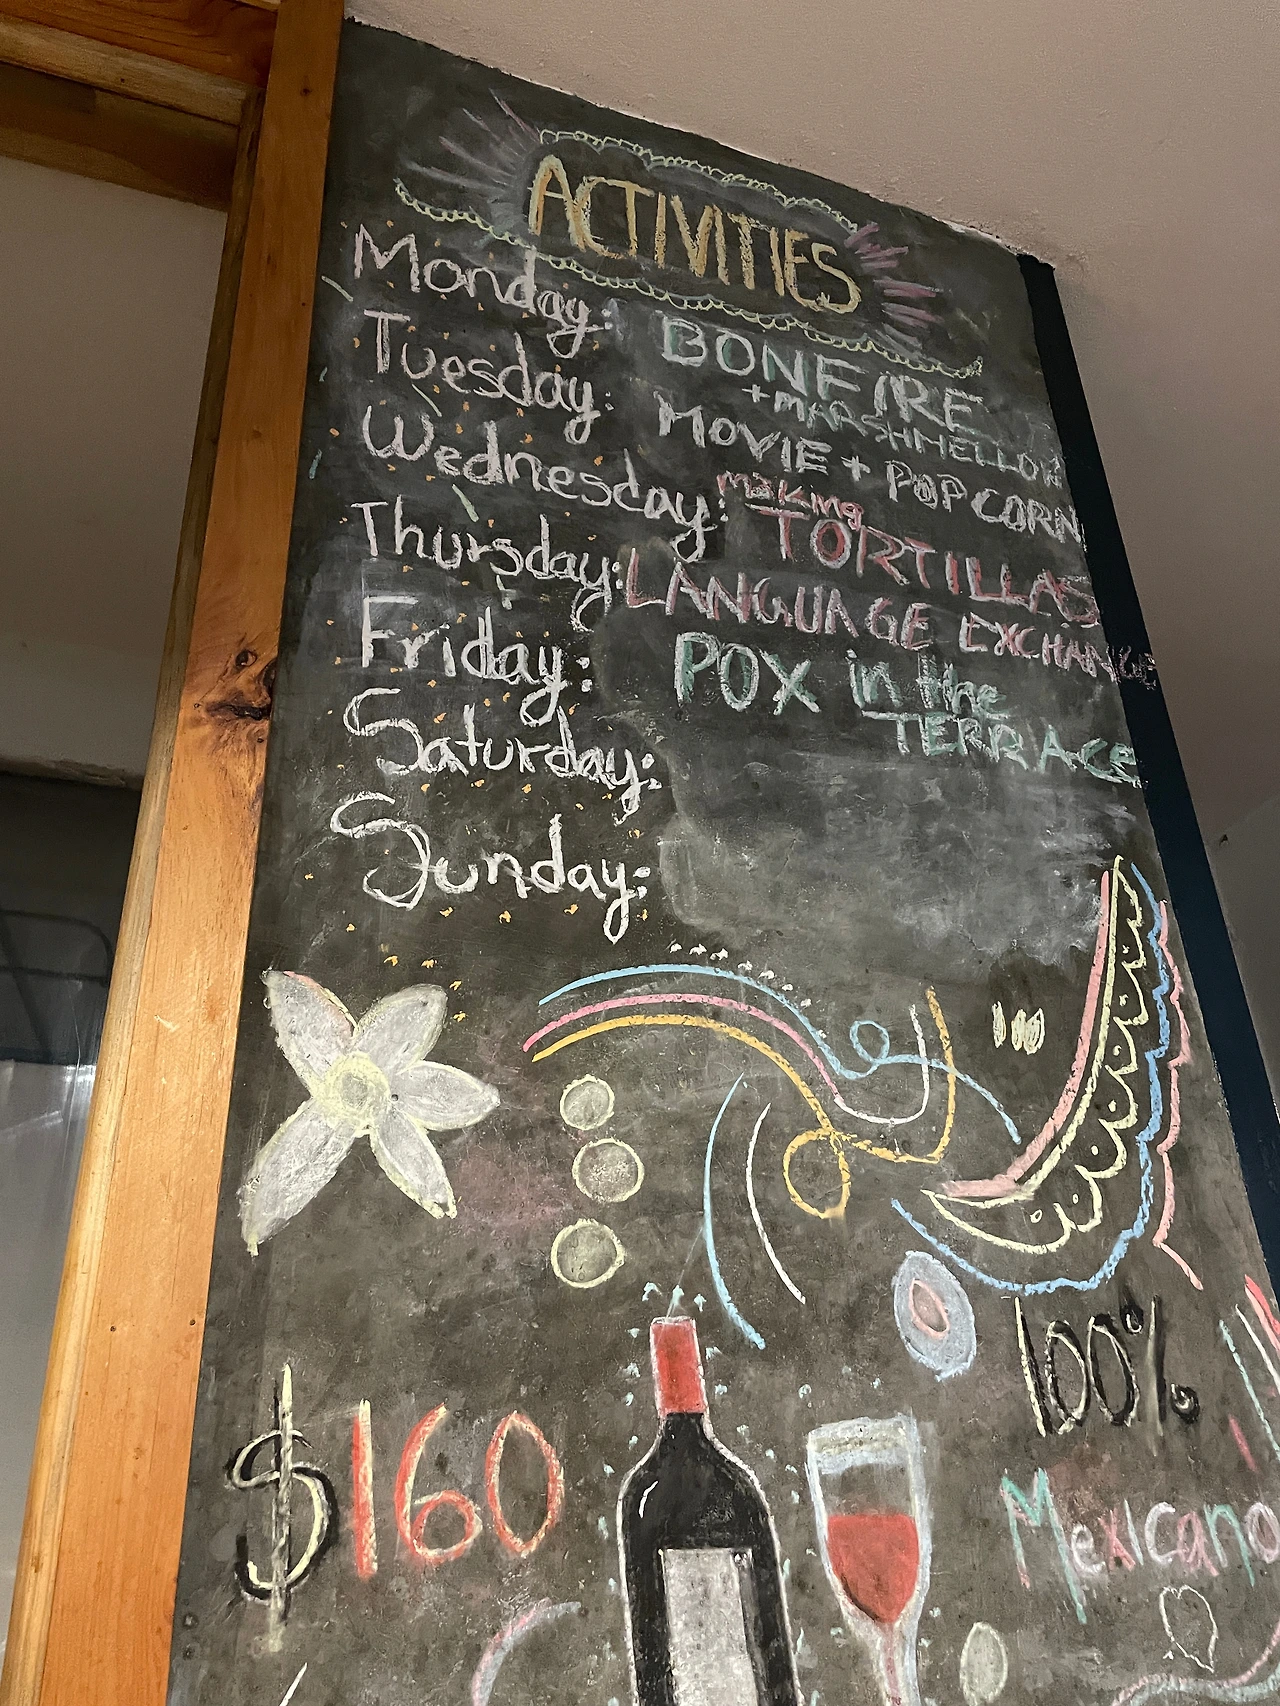 ACTIVITIES
Monday: BONFIRE
+ MARSHMELLOW
Tuesday: MOVIE + POPCORN
Wednesday: making TORTILLAS
Thursday: LANGUAGE EXCHANGE
Friday: POX in the
TERRACE
Saturday:
Sunday:
$160
100%
Mexicano